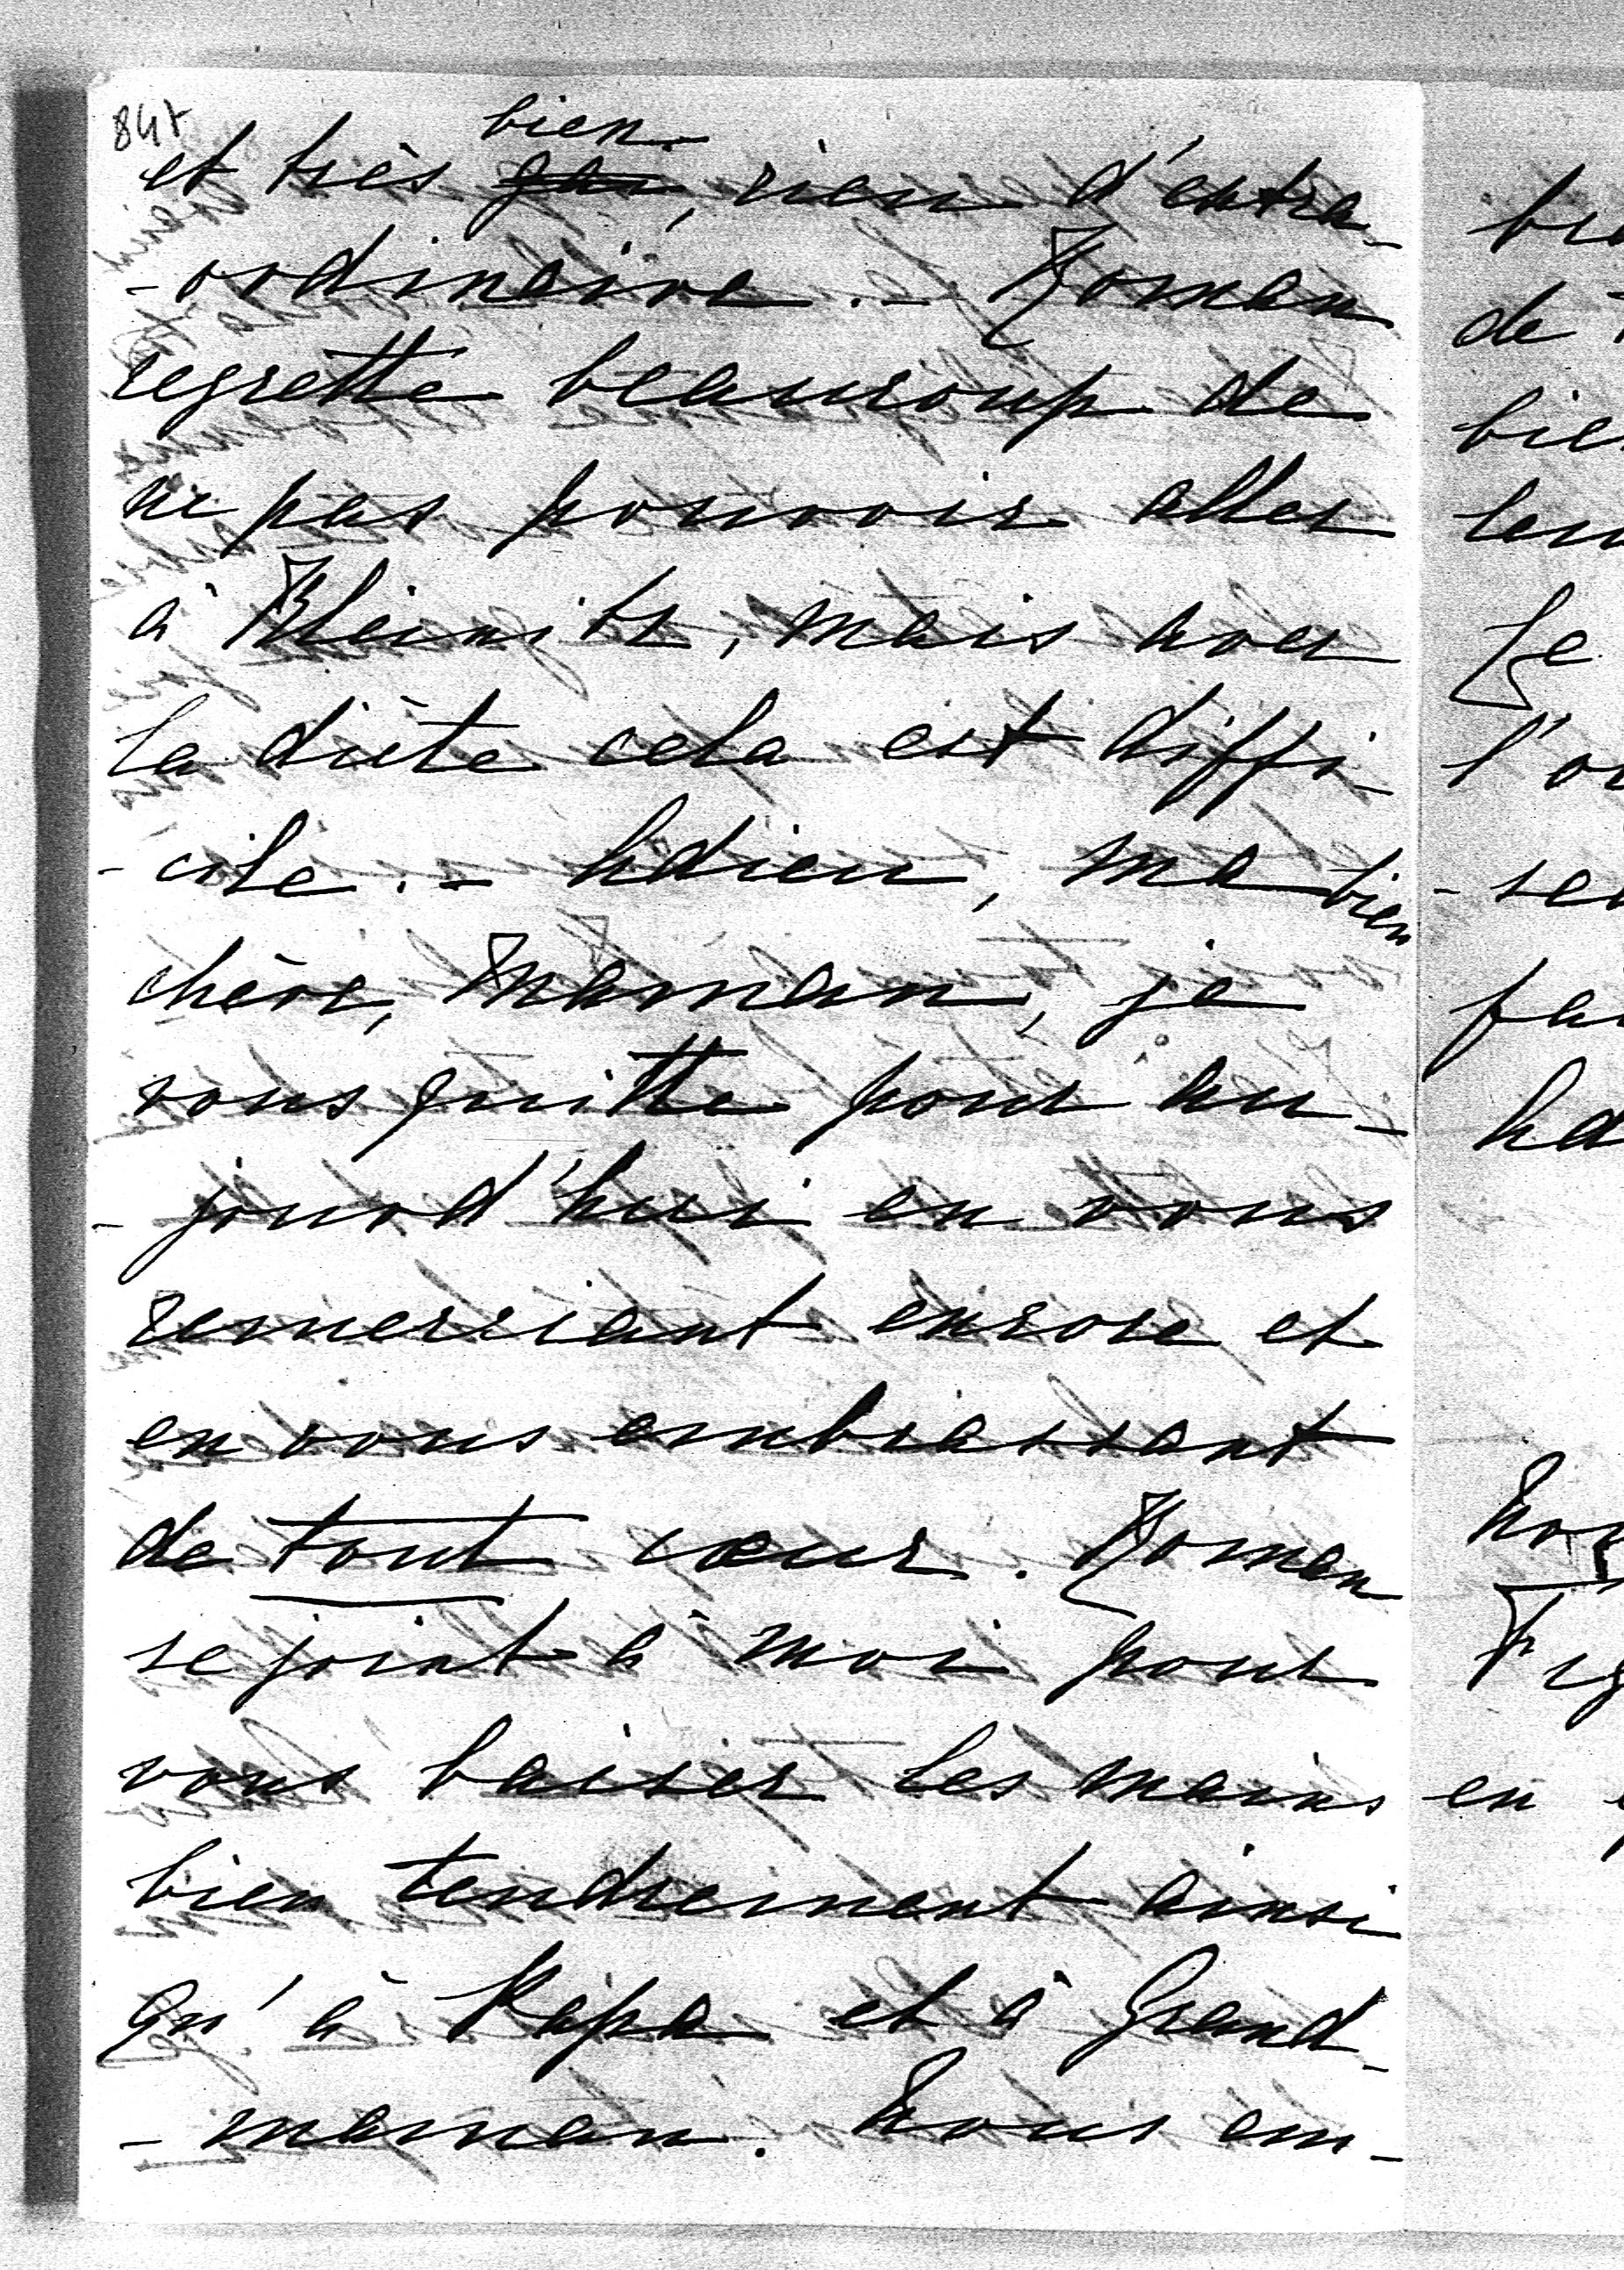 84v
bien
et très gai, rien d'extra-
-ordinaire. - Roman
regrette beaucoup de
ne pas pouvoir aller
à Kleinitz, mais avec
la diète cela est diffi-
-cile. - Adieu, ma bien
chère, Maman, je
vous quitte pour au-
-jourd'hui en vous
remerciant encore et
en vous embrassant
de tout cœur. Roman
se joint à moi pour
vous baiser les mains
bien tendrement ainsi
qu'à Papa et à Grand-
-maman. Nous em-
de
l'
en